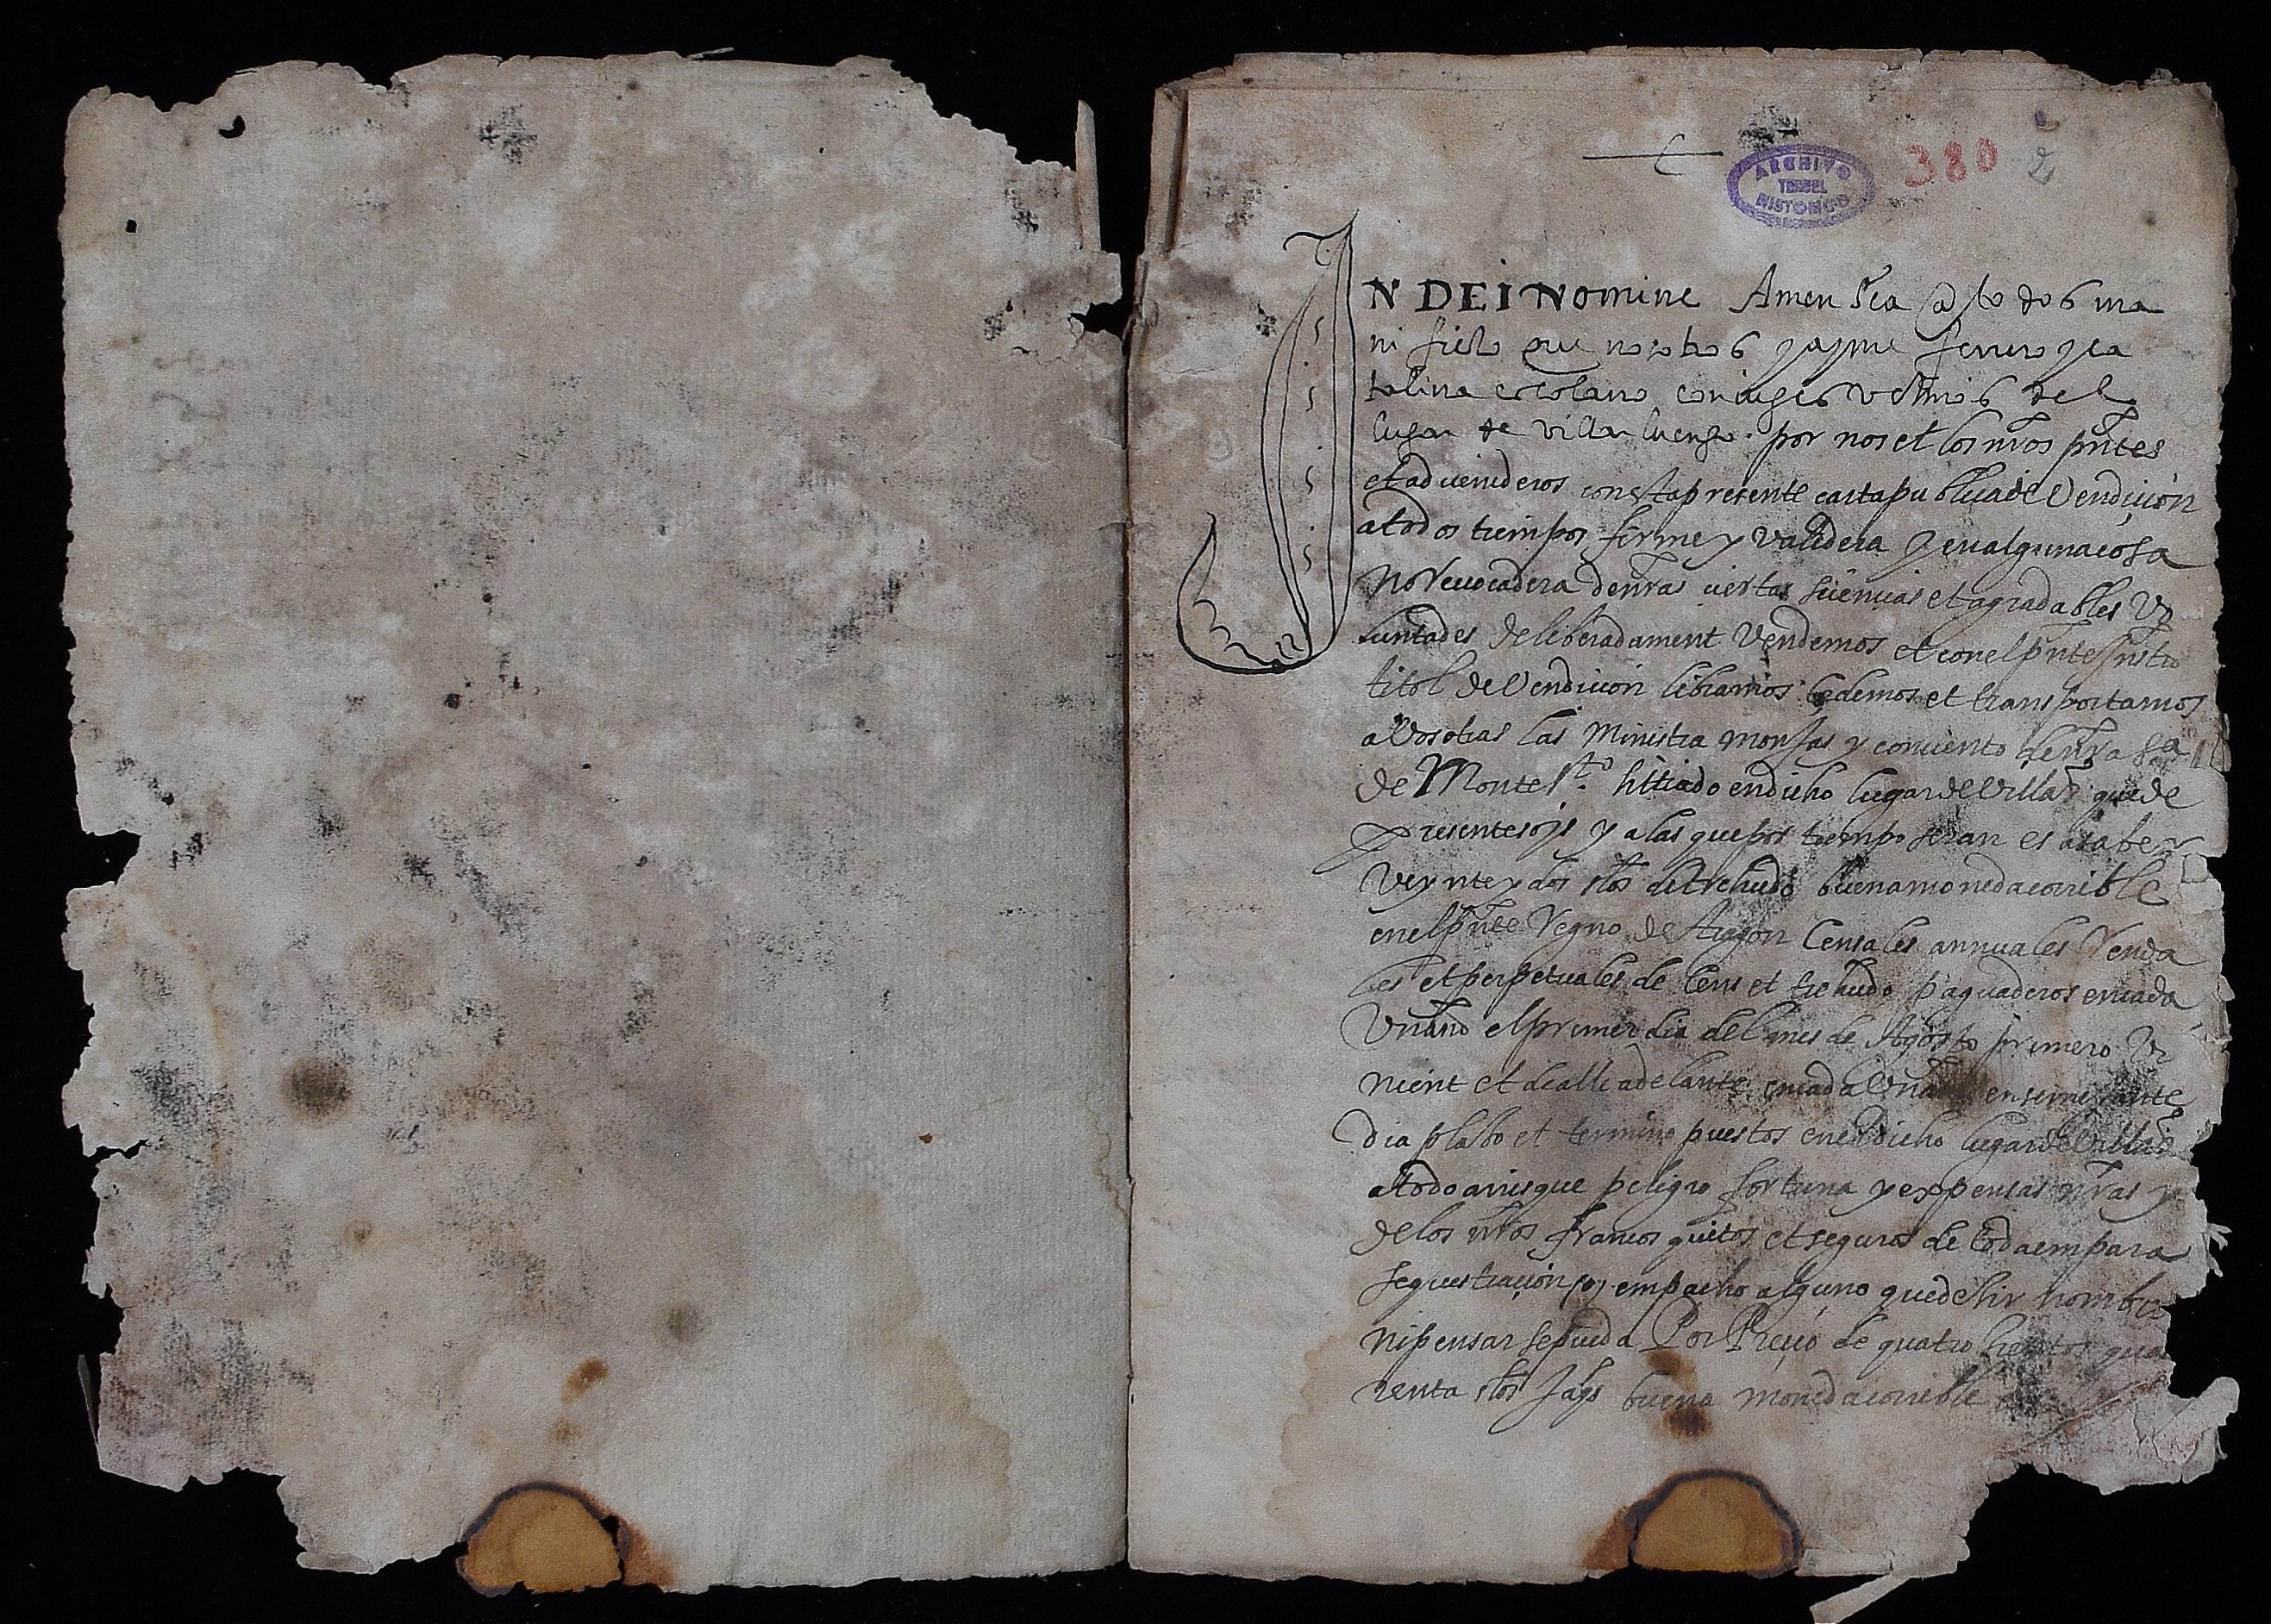 ARCHIVO
TERUEL
HISTORICO
380 2
IN DEI Nomine Amen Sea a todos ma
nifiesto que nosotros Jayme ferrero y ca
talina escolano coniuges vecinos del
lugar de villarluengo. por nos et los nros pntes
et aduenideros con esta presente carta publica de Vendicion
a todos tiempos firme y valedera y en alguna cosa
no Reuocadera de nras ciertas sciencias et agradables Vo
luntades deliberadament Vendemos et con el pnte
titol de Vendicion libramos cedemos et transportamos
a Vosotras las Ministra monjas y conuento de nra Sa
de Monte Sto. sittiado en dicho lugar de Villar que de
presente soys y a las que por tiempo seran es a saber
Veynte y dos slos de trehudo buena moneda corrible
en el pnte Regno de Aragon Censales annuales Renda
les et perpetuales de Cens et trehudo paguaderos en cada
Vn año el primer dia del mes de Agosto primero Vi
nient et de alli adelante en cada Vn año en semejante
dia plazo et termino puestos en el dicho lugar de Villar
a todo arrisque peligro fortuna y expensas nras y
de los nros francos quitos et seguros de toda empara
sequestracion o empacho alguno que dezir nombr
ni pensar se pueda Por Precio de quatrozientos qua
renta slos Jaqs buena moneda corrible